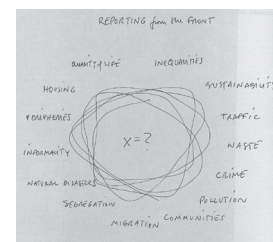 REPORTING from the FRONT
QUALITY of LIFE INEQUALITIES
HOUSING SUSTAINABILITY
PERIPHERIES TRAFFIC
X=? WASTE
INFORMALITY CRIME
NATURAL DISASTERS POLLUTION
SEGREGATION COMMUNITIES
MIGRATION